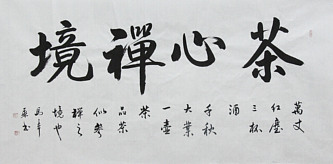 茶心禪境
萬丈
紅塵
三杯
酒
千秋
大業
一壺
茶
品茶
禪之
境也
書